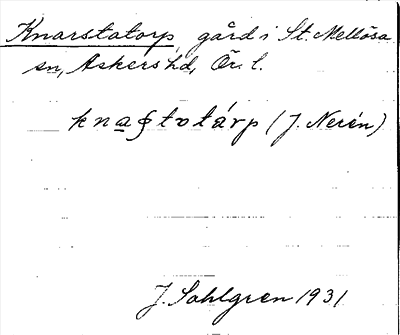 Knarstatorp, gård i St. Mellösa
sn, Askers hd, Ör. l.
knaꞩtotárp (J. Nerén)
J. Sahlgren 1931